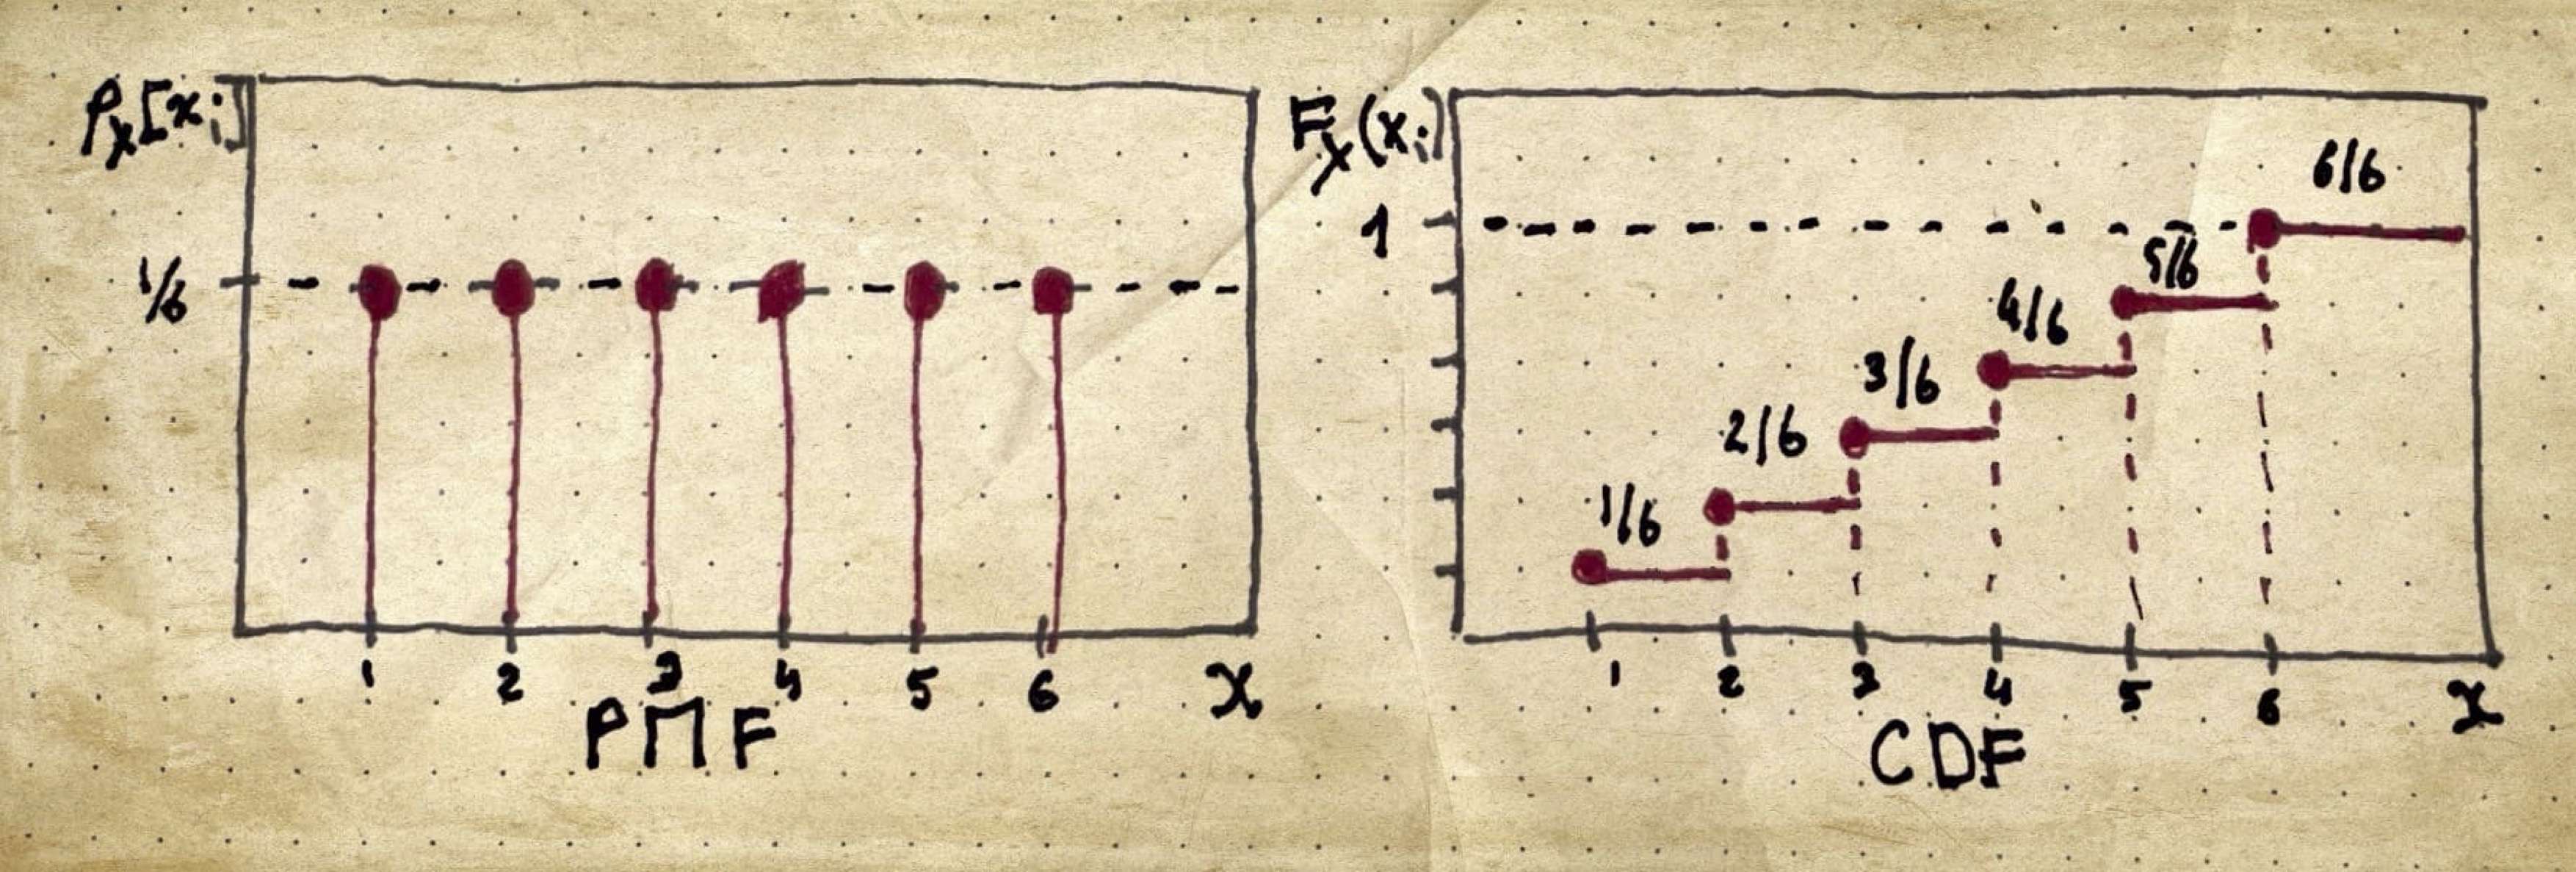 Px[xi]
1/6
1 2 3 4 5 6 x
PMF
Fx(xi)
1
6/6
5/6
4/6
3/6
2/6
1/6
1 2 3 4 5 6 x
CDF